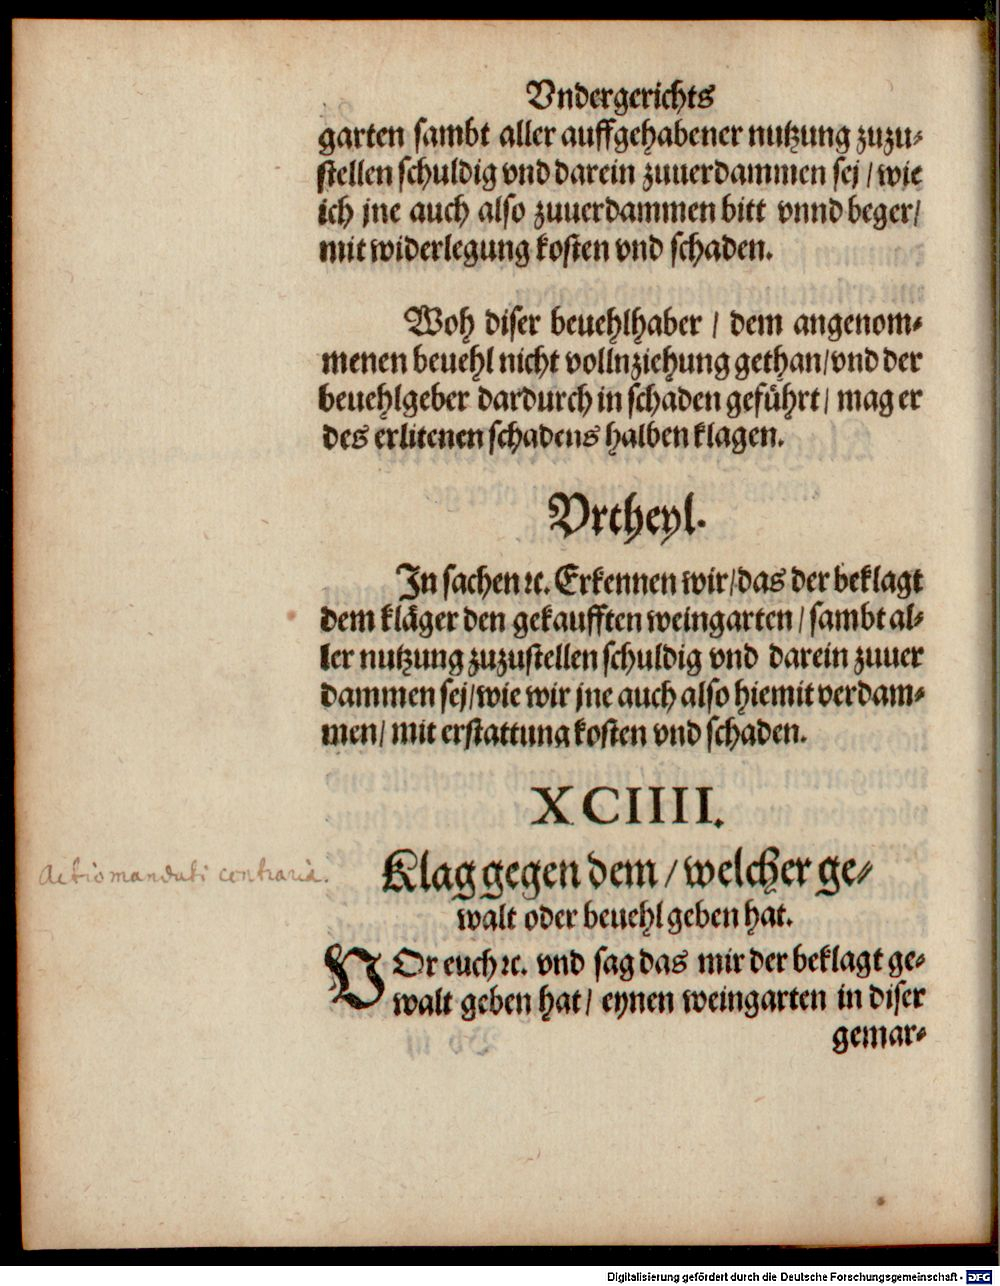 Vndergerichts
garten sambt aller auffgehabener nutzung zuzu⸗
stellen schuldig vnd darein zuuerdammen sej / wie
ich jne auch also zuuerdammen bitt vnnd beger/
mit widerlegung kosten vnd schaden.
Woh diser beuehlhaber / dem angenom⸗
menen beuehl nicht vollnziehung gethan/vnd der
beuehlgeber dardurch in schaden geführt/ mag er
des erlitenen schadens halben klagen.
Vrtheyl.
In sachen ꝛc. Erkennen wir/das der beklagt
dem kläger den gekaufften weingarten / sambt al⸗
ler nutzung zuzustellen schuldig vnd darein zuuer
dammen sej/wie wir jne auch also hiemit verdam⸗
men/ mit erstattung kosten vnd schaden.
XCIIII.
Actio mandati contraria.
Klag gegen dem / welcher ge⸗
walt oder beuehl geben hat.
VOr euch ꝛc. vnd sag das mir der beklagt ge⸗
walt geben hat/ eynen weingarten in diser
gemar⸗
Digitalisierung gefördert durch die Deutsche Forschungsgemeinschaft - DFG